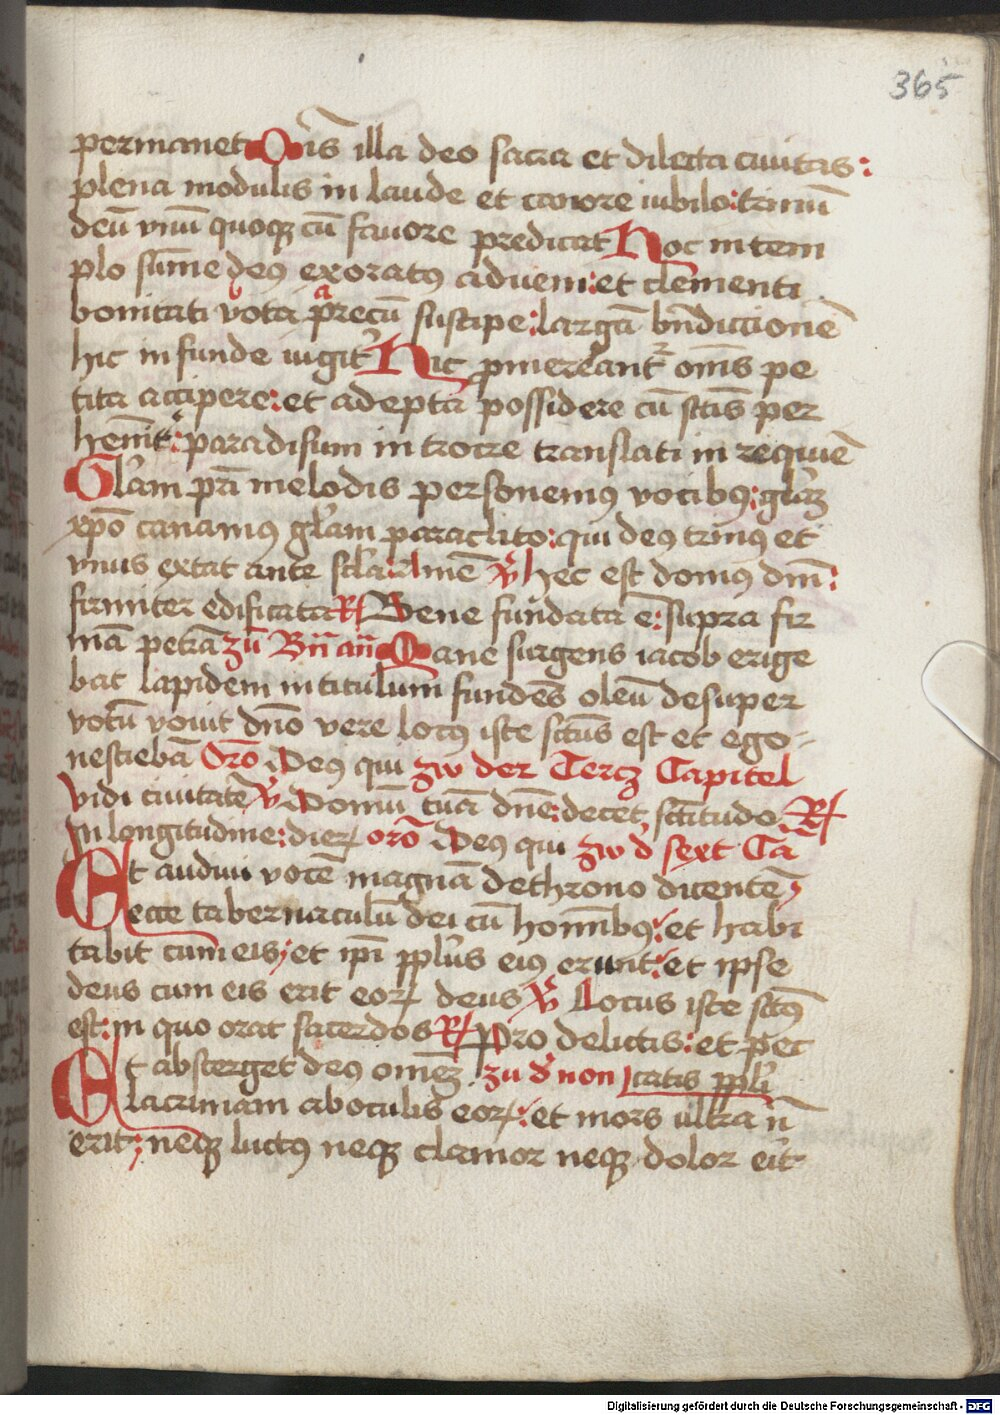 365
permanet Om̄is illa deo sacra et dilecta ciuitas:
plena modulis in laude et canore iubilo: trinū
deū vnū quoqꝫ cū fauore predicat Hoc in tem
plo sūme deꝰ exoratꝰ adueni: et clementi
bonitati vota precū suscipe: largā bn̄dictionē
hic infunde iugit͛ Hic ꝓmereant᷑ om̄s pe
tita accipere: et adepta possidere cū sctīs per
henīt͛: paradisum introire translati in requiē
Gl̄am pr̄i melodis personemꝰ vocibꝰ: gl̄aꝫ
xp̄o canamꝰ gl̄am paraclito: qui deꝰ trinꝰ et
vnus extat ante scl̄a amē v̄ hec est domꝰ dn̄i:
firmiter edificata R Bene fundata ē: supra fir
mā petrā zū Bn̄ an̄ Mane surgens iacob erige
bat lapidem in titulum fundēs oleū desuper
votū vouit dn̄o vere locꝰ iste sctūs est et ego
nesciebā Orō Deꝰ qui zw der Tercꝫ Capitel
Vidi ciuitatē v̄ Domū tuā dn̄e: decet sctītudo R
In longitudine: dieꝝ orō Deꝰ qui zw d͛ sext Ca
Et audiui vocē magnā dethrono dicentē
ecce tabernaculū dei cū hom̄ibꝰ: et habi
tabit cum eis; et ip̄i ppl̄us eiꝰ erunt: et ipse
deus cum eis erit eoꝝ deus v̄ Locus iste sctꝰ
est: in quo orat sacerdos R Pro delictis: et pec
Et absterget deꝰ omēꝫ zu d͛ non catis ppl̄i
lacrimam aboculis eoꝝ: et mors ultra n̄
erit; neqꝫ luctꝰ neqꝫ clamor neqꝫ dolor eīt
Digitalisierung gefördert durch die Deutsche Forschungsgemeinschaft - DFG